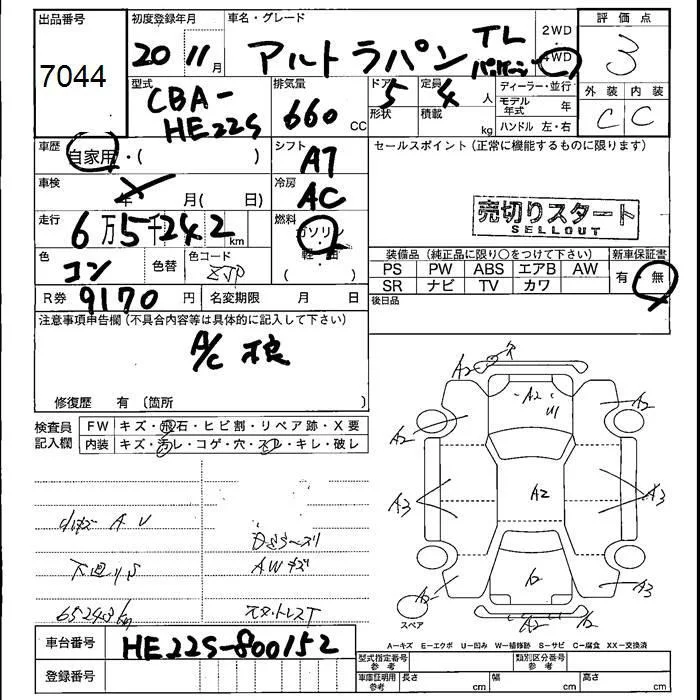 出品番号
7044
初度登録年月
20 11月
車名・グレード
アルトラパン TL
2WD
4WD
評価点
3
外装 内装
C C
型式
CBA-
HE22S
排気量
660 CC
ドア 5
形状
定員 4 人
積載 kg
ディーラー・並行
モデル年式 年
ハンドル 左・右
車歴
自家用・( )
シフト
AT
セールスポイント(正常に機能するものに限ります)
車検
年 月( 日)
冷房
AC
売切りスタート
SELLOUT
走行
6万5千242km
燃料
ガソリン
軽・油
( )
色
コン
色替
色コード
ZJP
装備品(純正品に限り○をつけて下さい)
PS PW ABS エアB AW
SR ナビ TV カワ
新車保証書
有 無
R券 9170 円
名変期限 月 日
後日品
注意事項申告欄(不具合内容等は具体的に記入して下さい)
A/C 不良
修復歴 有(箇所 )
検査員
記入欄
FW キズ・飛石・ヒビ割・リペア跡・X要
内装 キズ・汚レ・コゲ・穴・スレ・キレ・破レ
小キズ A U
AWキズ
65243km
A2 A2 U1 A2 A2
A3 A2 A3
A2 A3
A2
スペア
A-キズ E-エクボ U-凹み W-補修跡 S-サビ C-腐食 XX-交換済
車台番号
HE22S-800152
登録番号
型式指定番号
参考
類別区分番号
参考
車庫証明用
参考
長さ cm
幅 cm
高さ cm